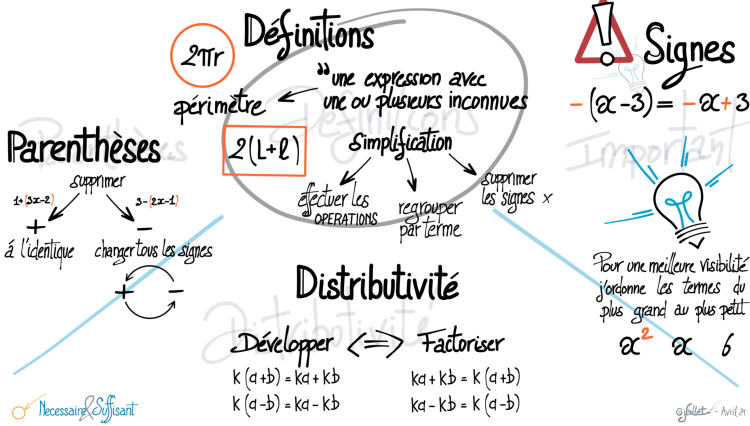 Définitions
2πr
"une expression avec
une ou plusieurs inconnues
périmètre
2(L+ℓ)
Simplification
effectuer les
OPERATIONS
regrouper
par terme
supprimer
les signes ×
Signes
-(x-3)=-x+3
Important
Pour une meilleure visibilité
j'ordonne les termes du
plus grand au plus petit
x² x 6
Parenthèses
supprimer
1+(3x-2)
3-(2x-1)
+
-
á l'identique
changer tous les signes
+ -
Distributivité
Développer <=> Factoriser
K(a+b)=Ka+Kb
K(a-b)=Ka-Kb
Ka+Kb=K(a+b)
Ka-Kb=K(a-b)
Necessaire&Suffisant
- Avril 21